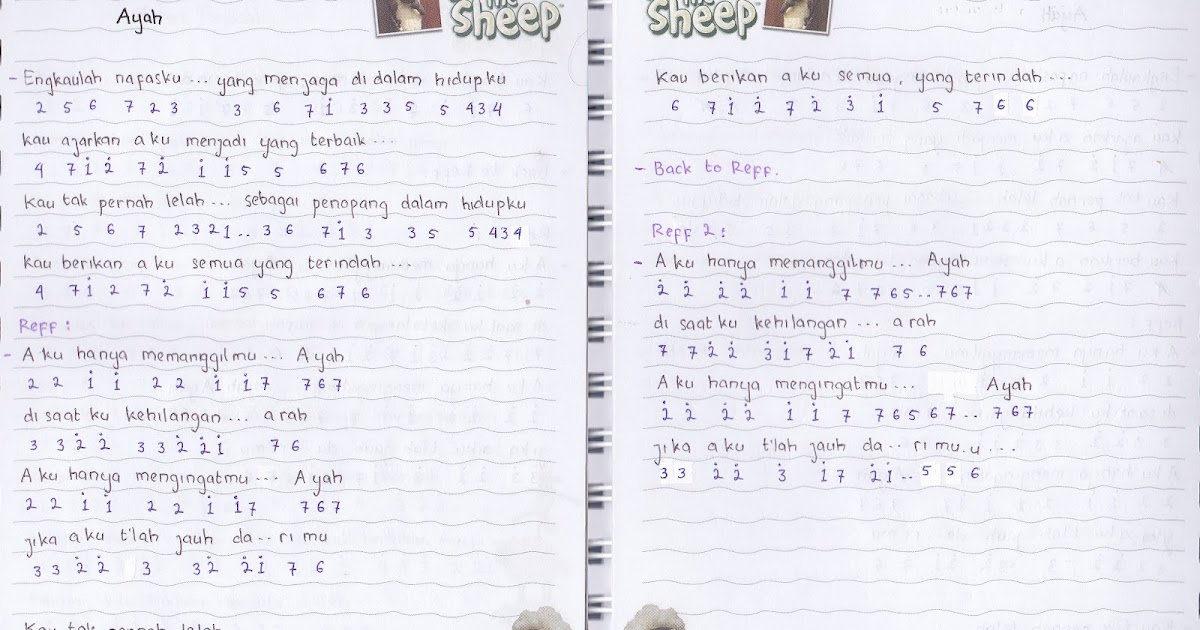 Ayah
the Sheep
- Engkaulah napasku ... yang menjaga di dalam hidupku
2 5 6 7 2 3 3 6 7 1̇ 3 3 5 5 4 3 4
Kau ajarkan aku menjadi yang terbaik ...
4 7 1̇ 2̇ 7 2̇ 1̇ 1̇ 5 5 6 7 6
Kau tak pernah lelah ... sebagai penopang dalam hidupku
2 5 6 7 2 3 2 1 .. 3 6 7 1̇ 3 3 5 5 4 3 4
Kau berikan aku semua yang terindah ...
4 7 1̇ 2 7 2̇ 1̇ 1̇ 5 5 6 7 6
Reff :
- Aku hanya memanggilmu ... Ayah
2 2 1̇ 1̇ 2 2 1̇ 1̇ 7 7 6 7
di saat ku kehilangan ... arah
3 3 2̇ 2̇ 3 3 2̇ 2̇ 1̇ 7 6
Aku hanya mengingatmu ... Ayah
2 2 1̇ 1̇ 2 2 1̇ 1̇ 7 7 6 7
jika aku t'lah jauh da .. ri mu
3 3 2̇ 2̇ 3 3 2̇ 2̇ 1̇ 7 6
Kau tak pernah lelah
the Sheep
Kau berikan aku semua, yang terindah ...
6 7 1̇ 2̇ 7 2̇ 3̇ 1̇ 5 7 6 6
- Back to Reff.
Reff 2 :
- Aku hanya memanggilmu ... Ayah
2̇ 2̇ 2̇ 2̇ 1̇ 1̇ 7 7 6 5 .. 7 6 7
di saat ku kehilangan ... arah
7 7 2̇ 2̇ 3̇ 1̇ 7 2̇ 1̇ 7 6
Aku hanya mengingatmu ... Ayah
2̇ 2̇ 2̇ 2̇ 1̇ 1̇ 7 7 6 5 6 7 .. 7 6 7
jika aku t'lah jauh da .. ri mu . u ...
3 3 2̇ 2̇ 3̇ 1̇ 7 2̇ 1̇ .. 5 5 6